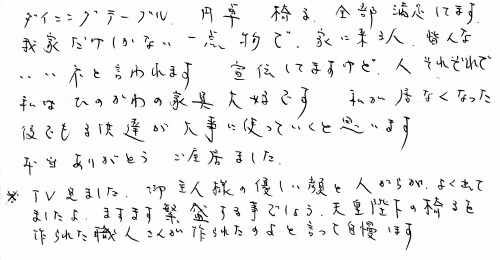 ダイニングテーブル、円卓 椅子、全部 満足してます。
我家だけしかない 一点物で、家に来る人、皆んな
いい木と言われます 宣伝してますけど、人それぞれで
私は ひのかわの家具大好です 私が居なくなった
後でも子供達が大事に使っていくと思います
本当ありがとう ございました。
※ TV見ました、御主人様の優しい顔と人がらが、よく出て
ましたよ、ますます繁盛する事でしょう、天皇陛下の椅子を
作られた職人さんが作られたのよと言って自慢します